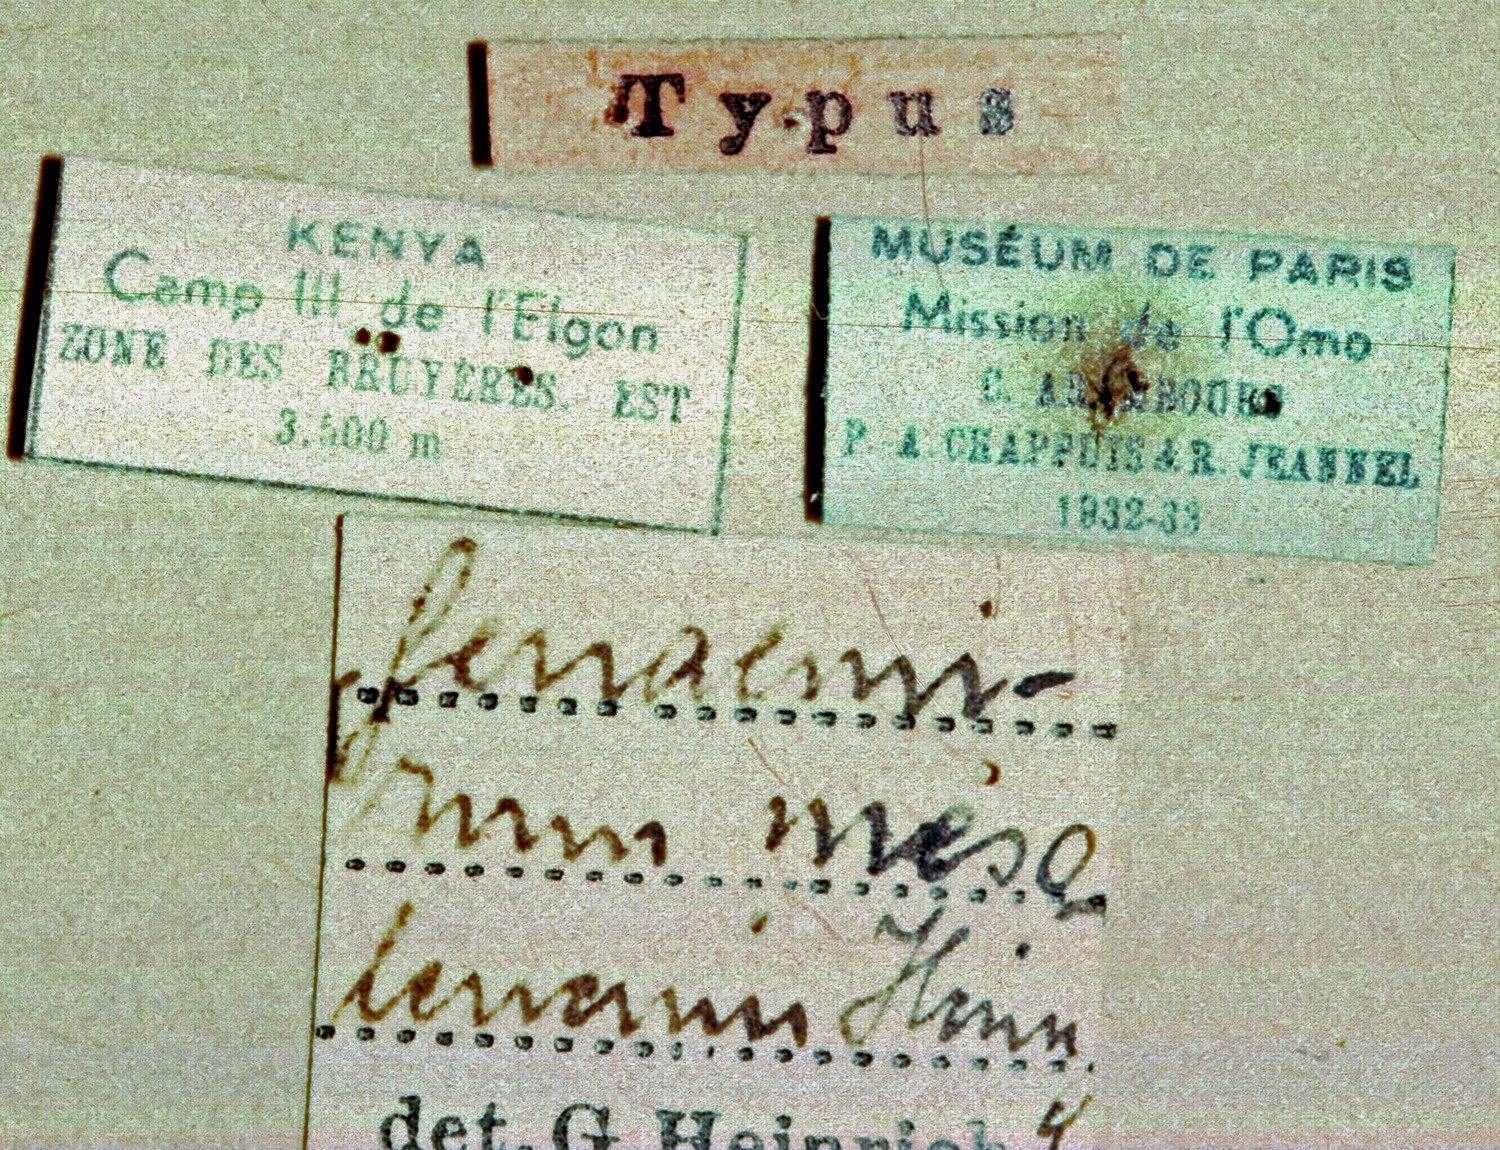 Typus
KENYA
Camp III de l'Elgon
ZONE DES BRUYÈRES. EST
3.500 m
MUSÉUM DE PARIS
Mission de l'Omo
C. ARAMBOURG
P.-A. CHAPPUIS & R. JEANNEL
1932-33
Hein
det. G. Heinrich